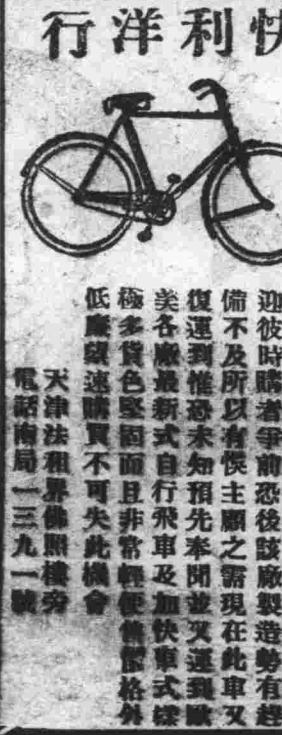 快利洋行
迎彼時購者爭前恐後該廠製造勢有趕
備不及所以有悞主顧之需現在此車又
復運到惟恐未知預先奉聞並又運到歐
美各廠最新式自行飛車及加快車式樣
極多貨色堅固而且非常輕便售價格外
低廉望速購買不可失此機會
天津法租界佛照樓旁
電話南局一三九一號